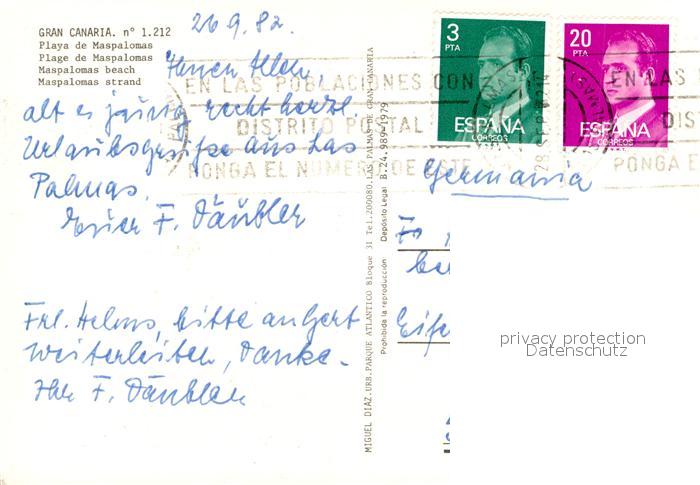 GRAN CANARIA. nº 1.212
Playa de Maspalomas
Plage de Maspalomas
Maspalomas beach
Maspalomas strand
26 9. 82.
Ihnen Allen,
recht herzl
Urlaubsgrüße aus Las
Palmas.
F. Däubler
Frl. Helms, bitte
weiterleiten, Danke.
Ihr F. Däubler
MIGUEL DIAZ.URB.PARQUE ATLANTICO Bloque 31 Tel.200080.LAS PALMAS DE GRAN CANARIA
Prohibida la reproducción
Depósito Legal B.24.989-1979
3
PTA
ESPAÑA
CORREOS
20
PTA
ESPAÑA
CORREOS
EN LAS POBLACIONES CON
DISTRITO POSTAL
PONGA EL NUMERO DE ESTE
EN LAS
DIS
PONGA E
Germania
privacy protection
Datenschutz